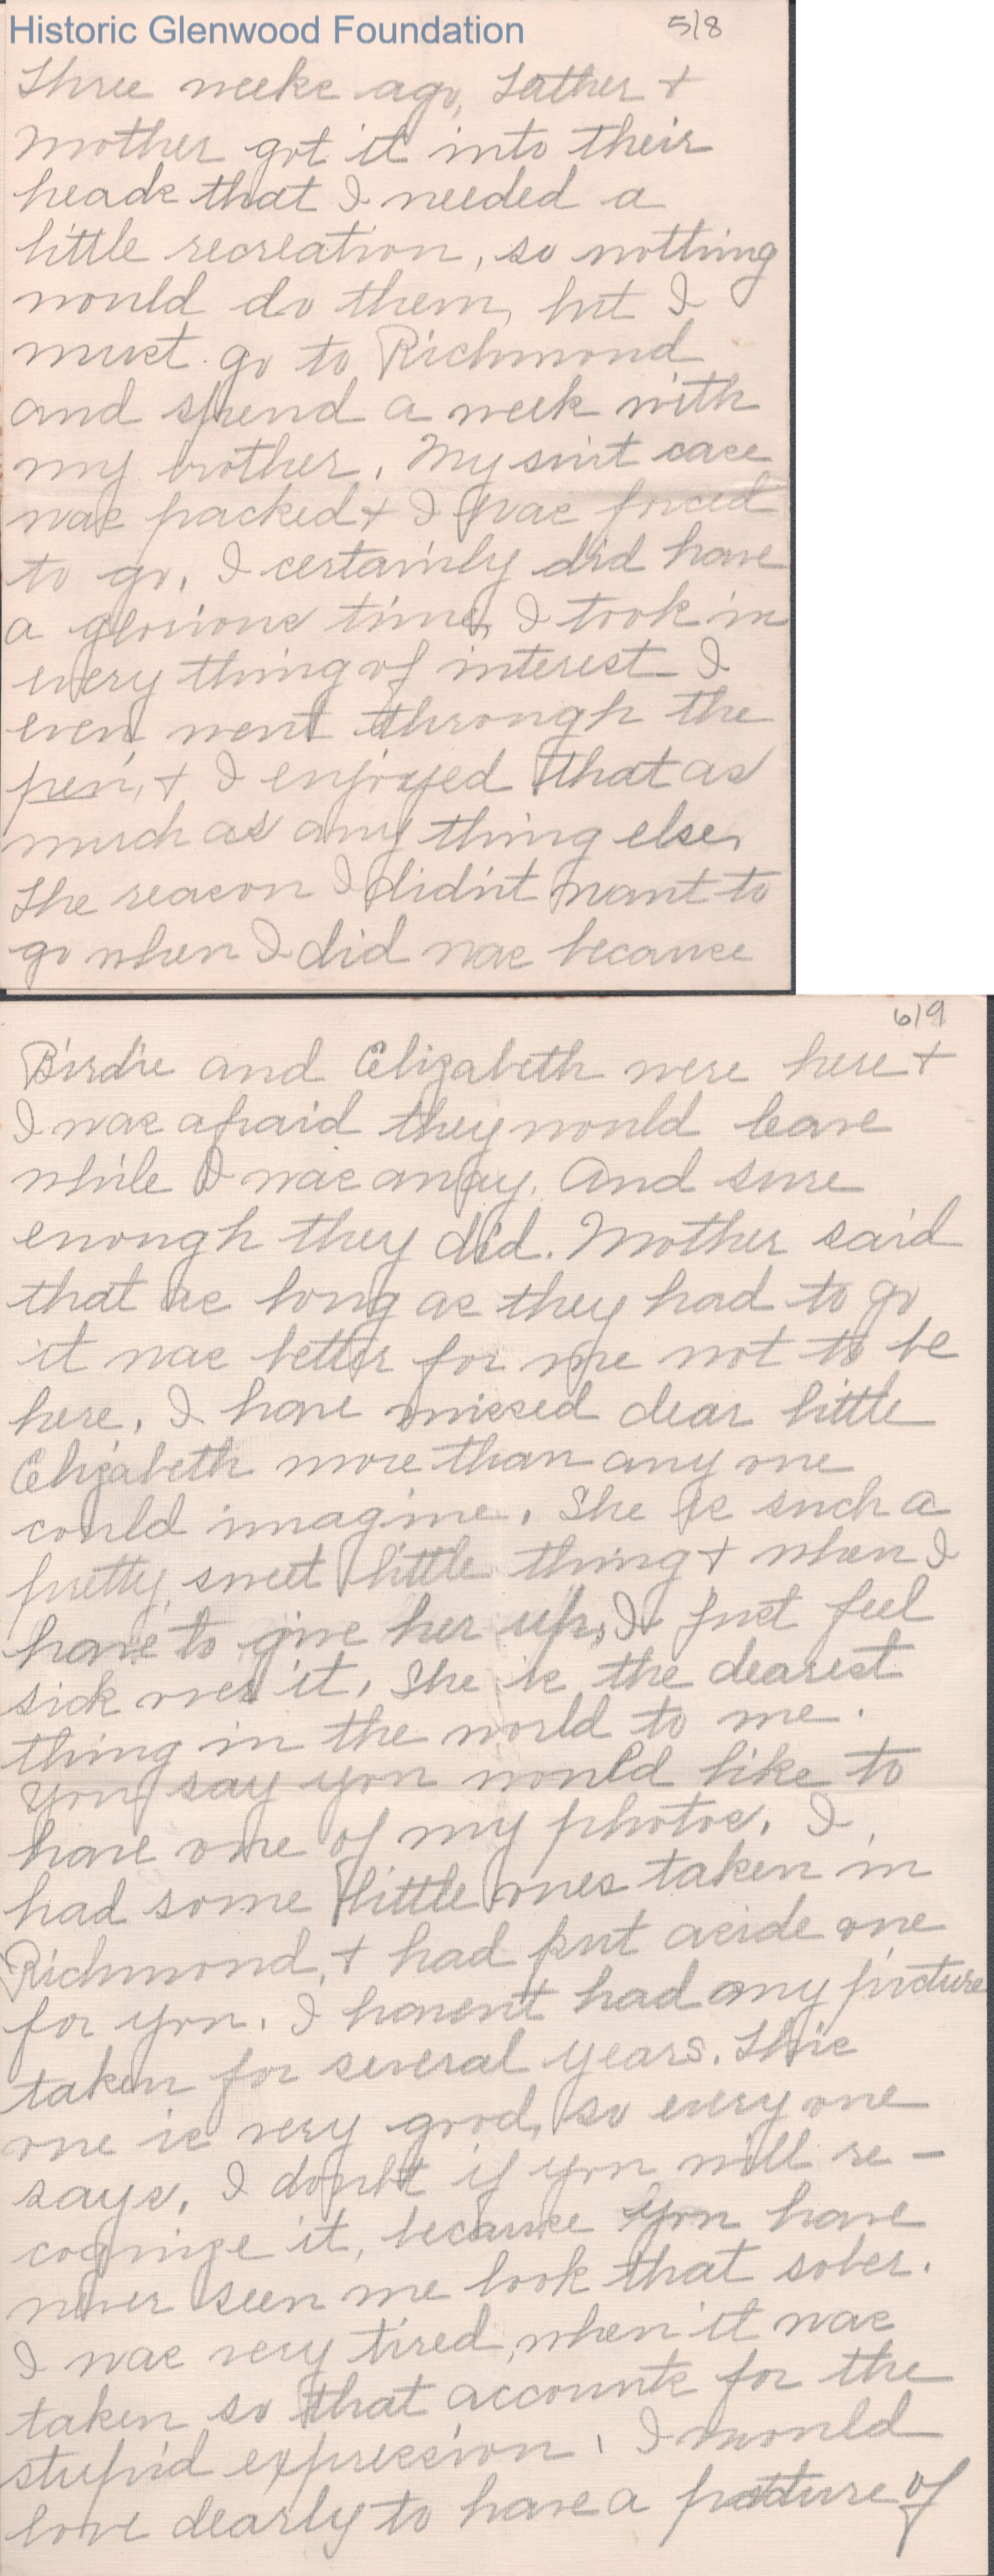 Historic Glenwood Foundation
5/8
Three weeks ago, Father +
Mother got it into their
heads that I needed a
little recreation, so nothing
would do them, but I
must go to Richmond
and spend a week with
my brother. My suit case
was packed + I was forced
to go. I certainly did have
a glorious time, I took in
every thing of interest I
even went through the
pen, + I enjoyed that as
much as any thing else.
The reason I didn't want to
go when I did was because
6/9
Birdie and Elizabeth were here +
I was afraid they would leave
while I was away. And sure
enough they did. Mother said
that as long as they had to go
it was better for me not to be
here. I have missed dear little
Elizabeth more than any one
could imagine. She is such a
pretty, sweet little thing + when I
have to give her up, I just feel
sick over it. She is the dearest
thing in the world to me.
You say you would like to
have one of my photos. I
had some little ones taken in
Richmond, + had put aside one
for you. I havent had my picture
taken for several years. This
one is very good, so every one
says. I doubt if you will re-
cognize it, because you have
never seen me look that sober.
I was very tired, when it was
taken so that accounts for the
stupid expression. I would
love dearly to have a picture of